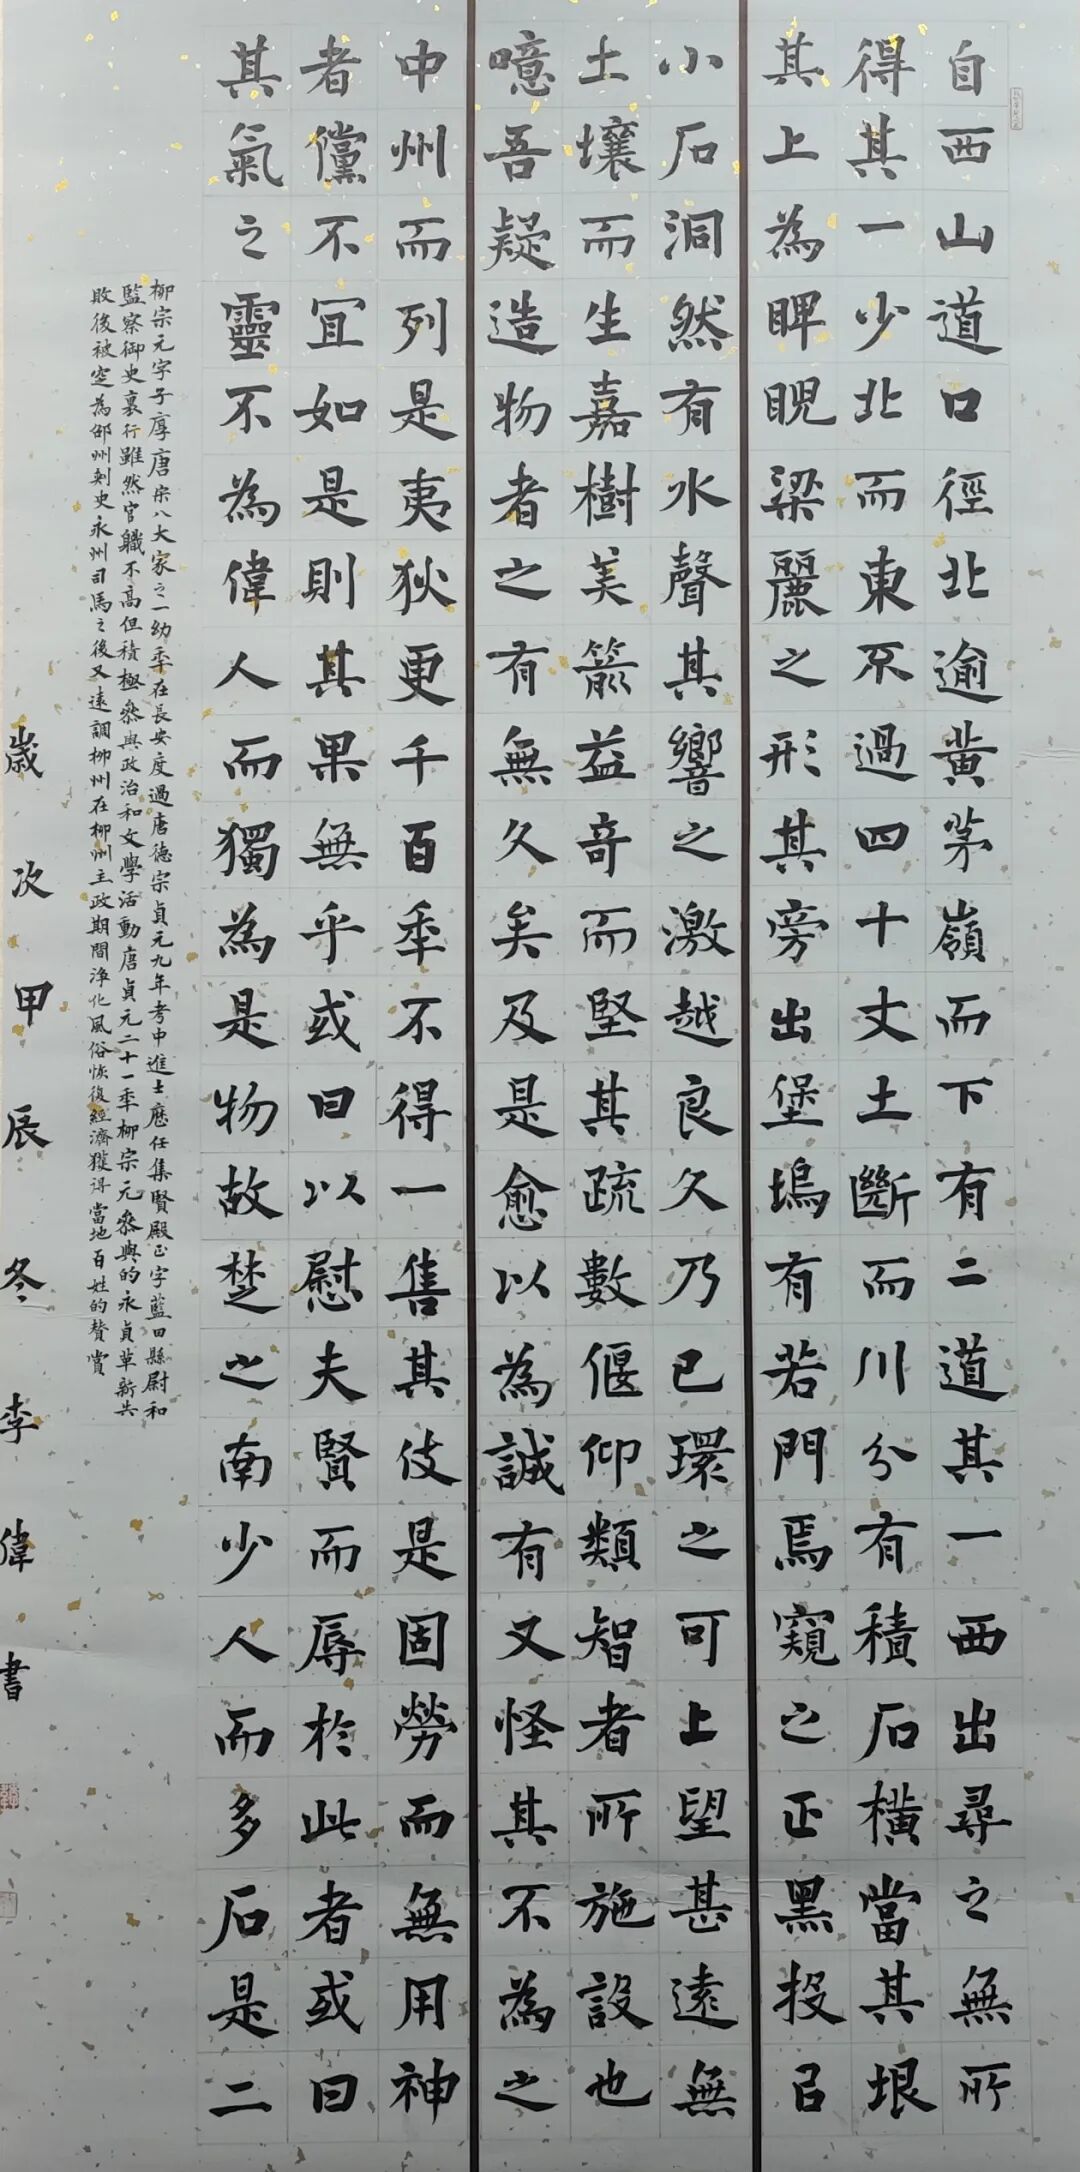 自西山道口徑北逾黄茅嶺而下有二道其一西出尋之無所
得其一少北而東不過四十丈土斷而川分有積石横當其垠
其上為睥睨梁麗之形其旁出堡塢有若門焉窺之正黑投㠯
小石洞然有水聲其響之激越良久乃已環之可上望甚遠無
土壤而生嘉樹美箭益奇而堅其疏數偃仰類智者所施設也
噫吾疑造物者之有無久矣及是愈以為誠有又怪其不為之
中州而列是夷狄更千百秊不得一售其伎是固勞而無用神
者儻不宜如是則其果無乎或曰以慰夫賢而辱於此者或曰
其氣之靈不為偉人而獨為是物故楚之南少人而多石是二
柳宗元字子厚唐宋八大家之一幼秊在長安度過唐德宗貞元九年考中進士歷任集賢殿正字藍田縣尉和
監察御史裏行雖然官職不高但積極參與政治和文學活動唐貞元二十一秊柳宗元參與的永貞革新失
敗後被定為邵州刺史永州司馬之後又遠調柳州在柳州主政期間淨化風俗恢復經濟獲得當地百姓的贊賞
歲次甲辰冬李偉書